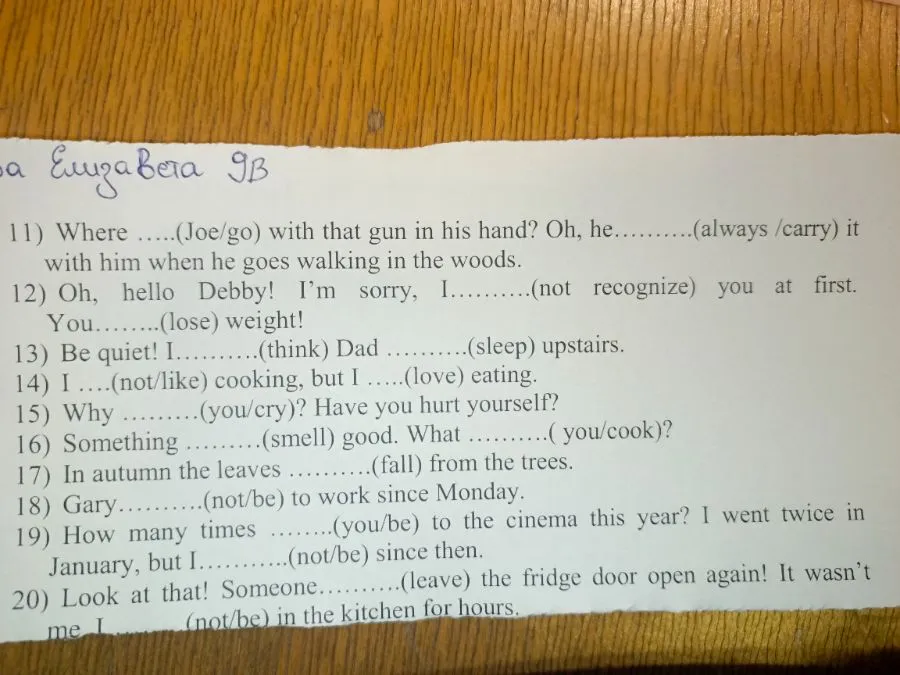 ва Елизавета 9В
11) Where .....(Joe/go) with that gun in his hand? Oh, he..........(always /carry) it
with him when he goes walking in the woods.
12) Oh, hello Debby! I'm sorry, I..........(not recognize) you at first.
You........(lose) weight!
13) Be quiet! I..........(think) Dad ..........(sleep) upstairs.
14) I ....(not/like) cooking, but I .....(love) eating.
15) Why .........(you/cry)? Have you hurt yourself?
16) Something .........(smell) good. What ..........( you/cook)?
17) In autumn the leaves ..........(fall) from the trees.
18) Gary..........(not/be) to work since Monday.
19) How many times ........(you/be) to the cinema this year? I went twice in
January, but I...........(not/be) since then.
20) Look at that! Someone..........(leave) the fridge door open again! It wasn't
me I.......... (not/be) in the kitchen for hours.